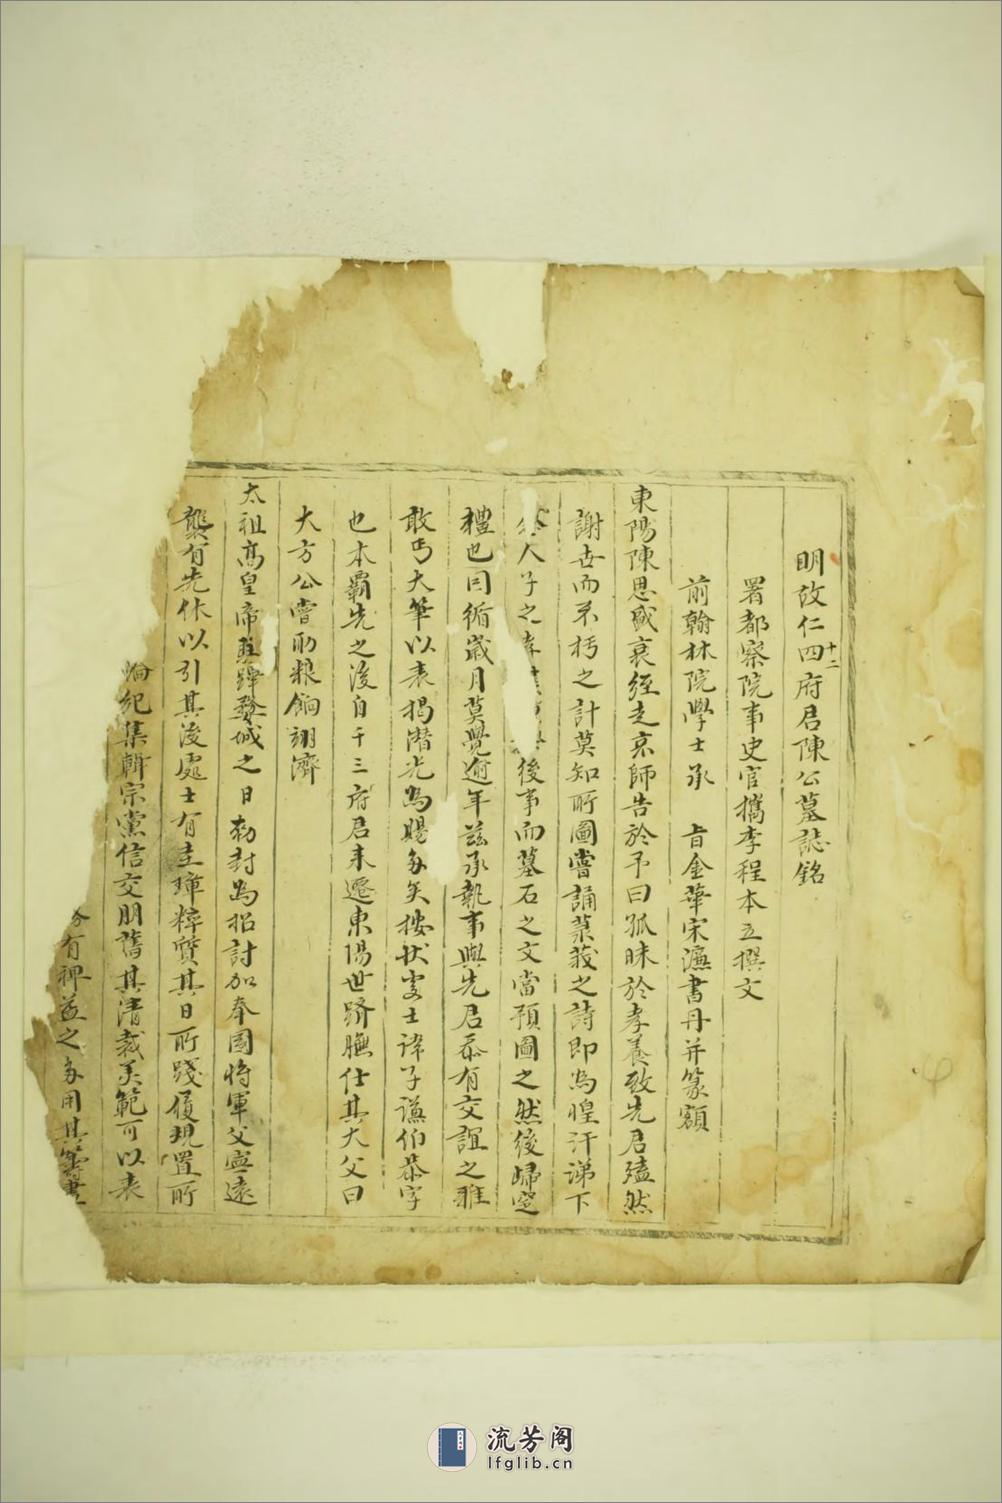 明故仁四府君陳公墓誌銘
十二
署都察院事史官攜李程本立撰文
前翰林院學士承　旨金華宋濂書丹并篆額
東陽陳思盛衰絰走京師告於予曰孤昧於孝養致先君殪然
謝世而不朽之計莫知所圖嘗誦蓼莪之詩即為惶汗涕下
人子之孝後事而墓石之文當預圖之然後歸窆
禮也因循歲月莫覺逾年茲承執事與先君忝有交誼之雅
敢丐大筆以表揭潛光為賜多矣按狀處士諱子謙伯恭字
也本霸先之後自千三府君來遷東陽世躋膴仕其大父曰
大方公嘗助粮餉翊濟
太祖高皇帝駐蹕婺城之日勅封為招討加奉國將軍父寧遠
襲有先休以引其後處士有圭璋粹質其日所踐履規置所
綸紀集輯宗黨信交朋舊其清裁美範可以表
有裨益之多用其
流芳阁
lfglib.cn